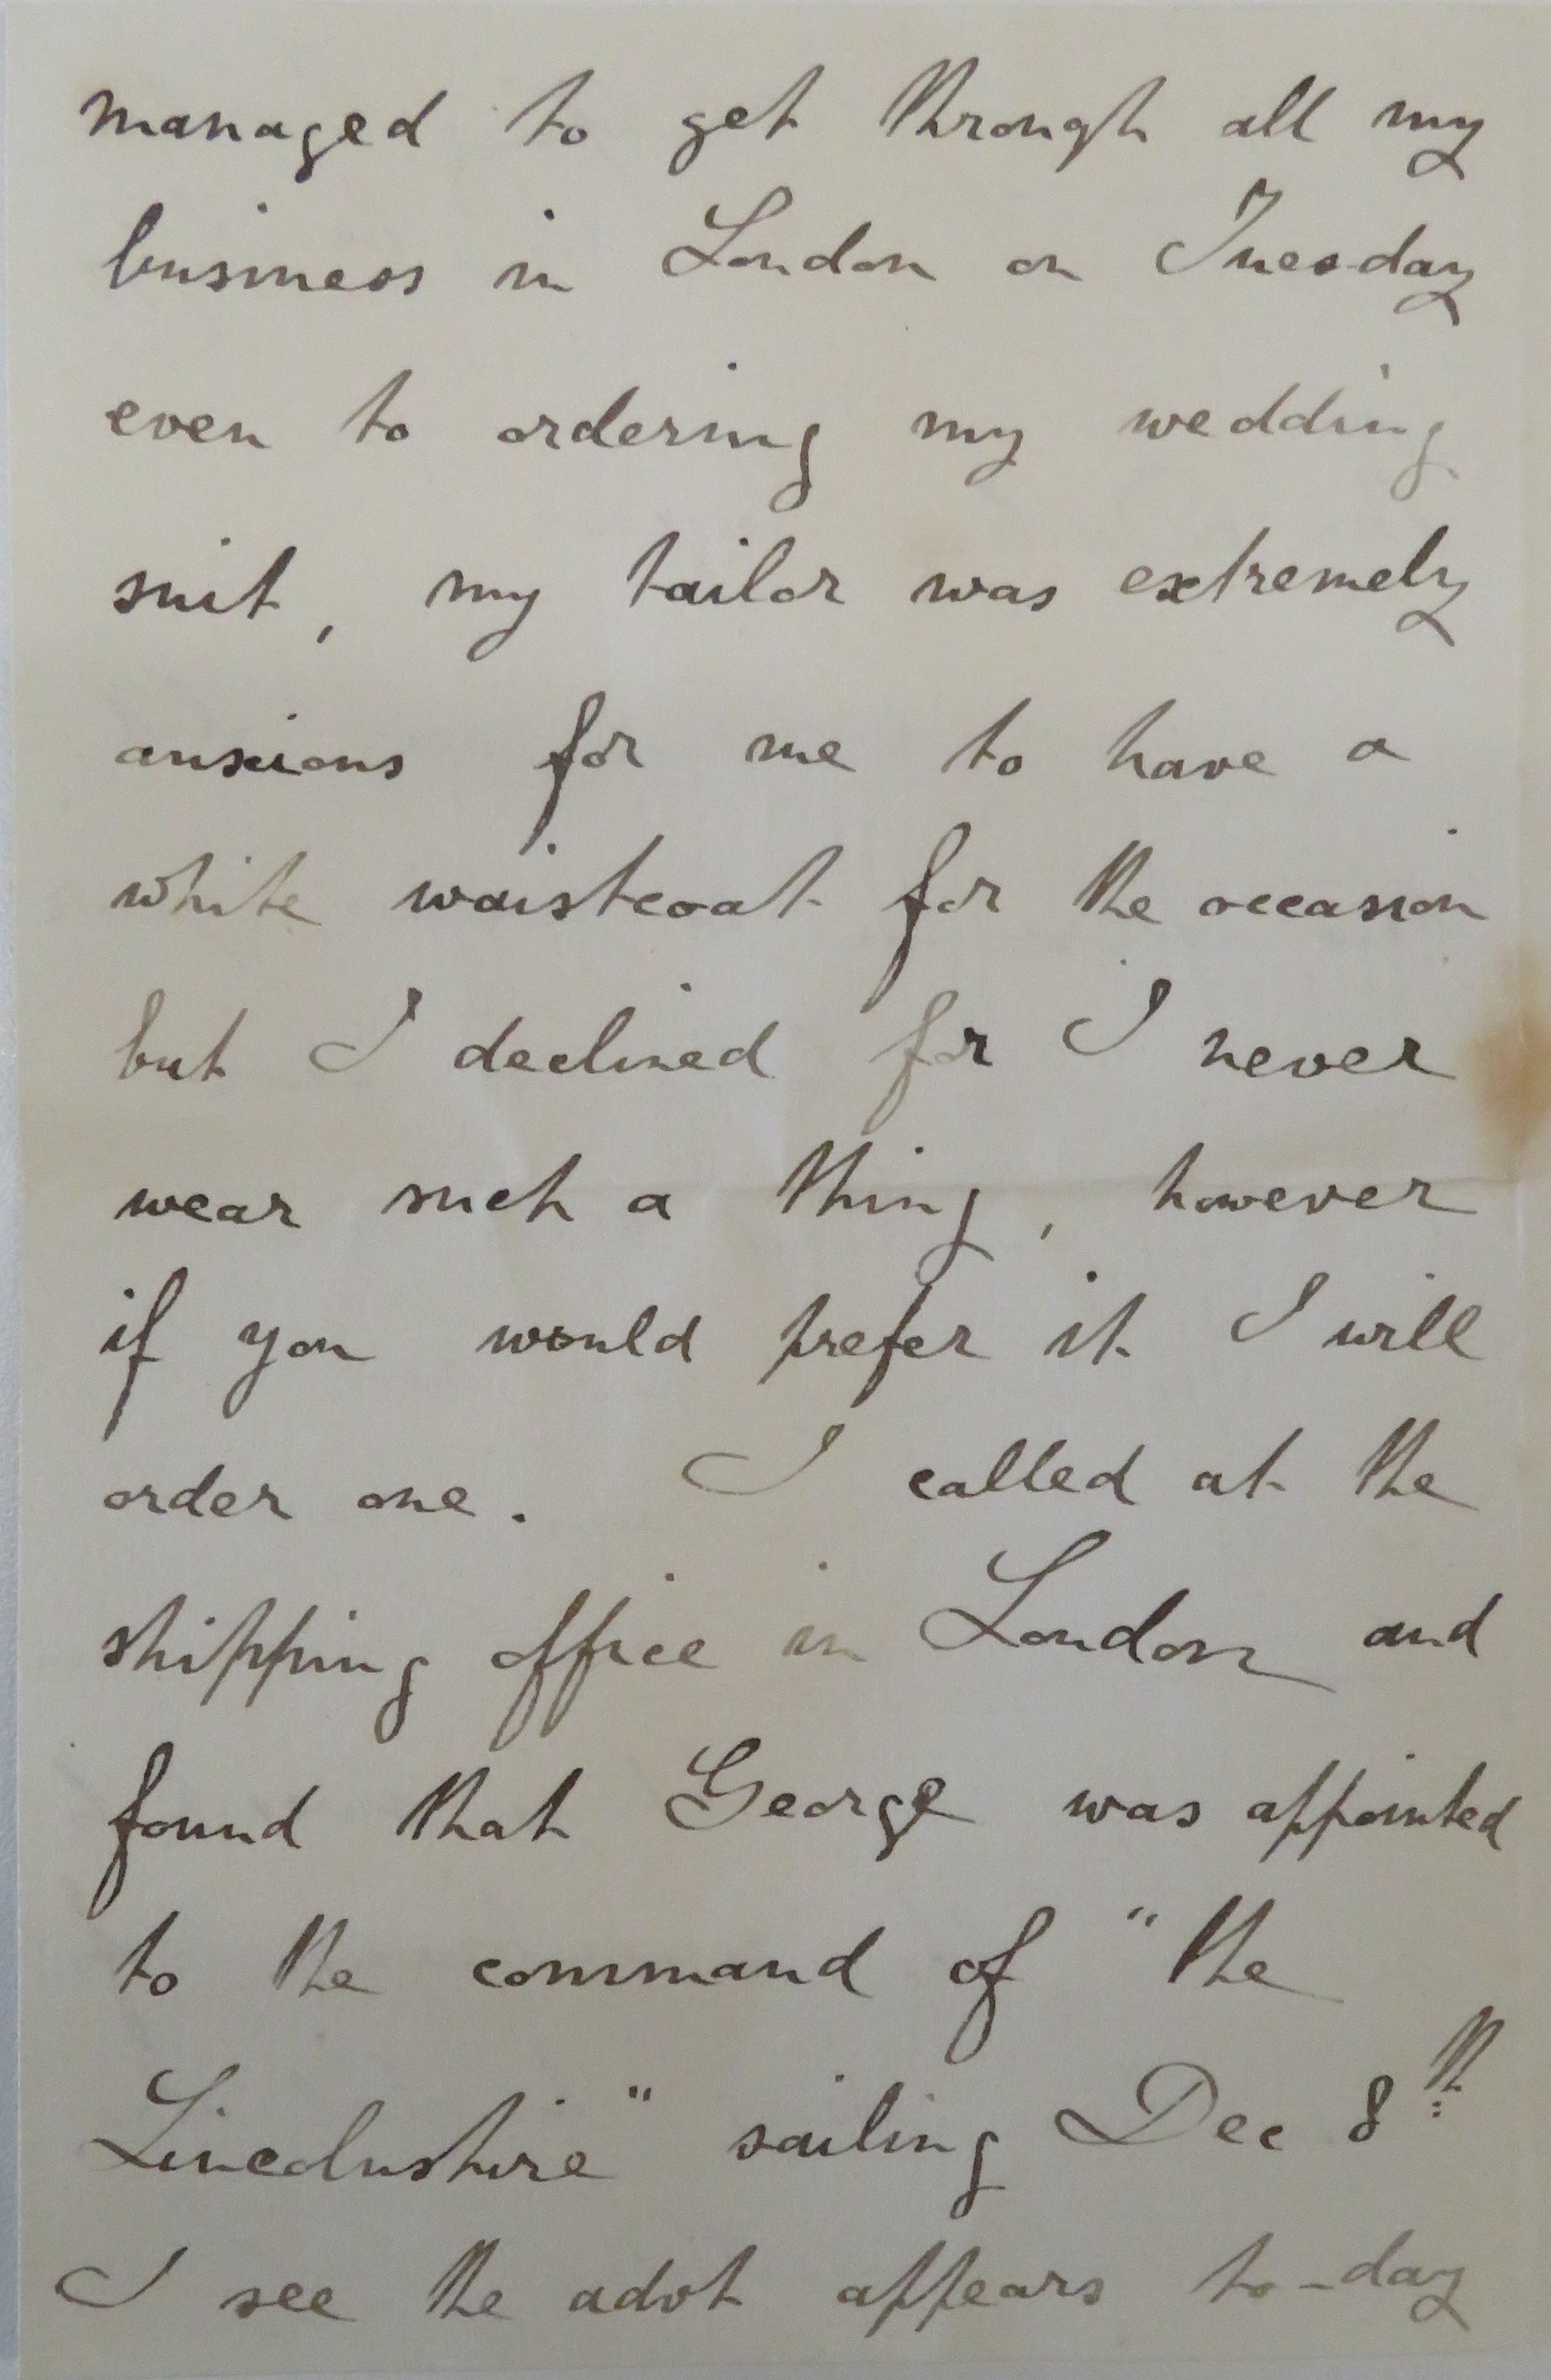 managed to get through all my
business in London on Tuesday
even to ordering my wedding
suit, my tailor was extremely
anxious for me to have a
white waistcoat for the occasion
but I declined for I never
wear such a thing, however
if you would prefer it I will
order one. I called at the
shipping office in London and
found that George was appointed
to the command of "the
Lincolnshire" sailing Dec 8th
I see the advt appears to-day